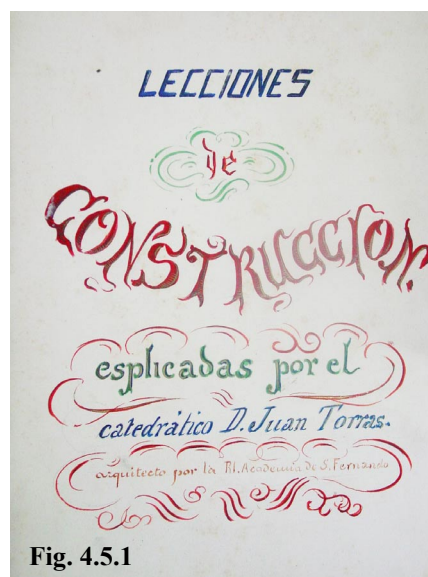 LECCIONES
de
CONSTRUCCION.
esplicadas por el
catedrático D. Juan Torras.
arquitecto por la Rl. Academia de S. Fernando
Fig. 4.5.1